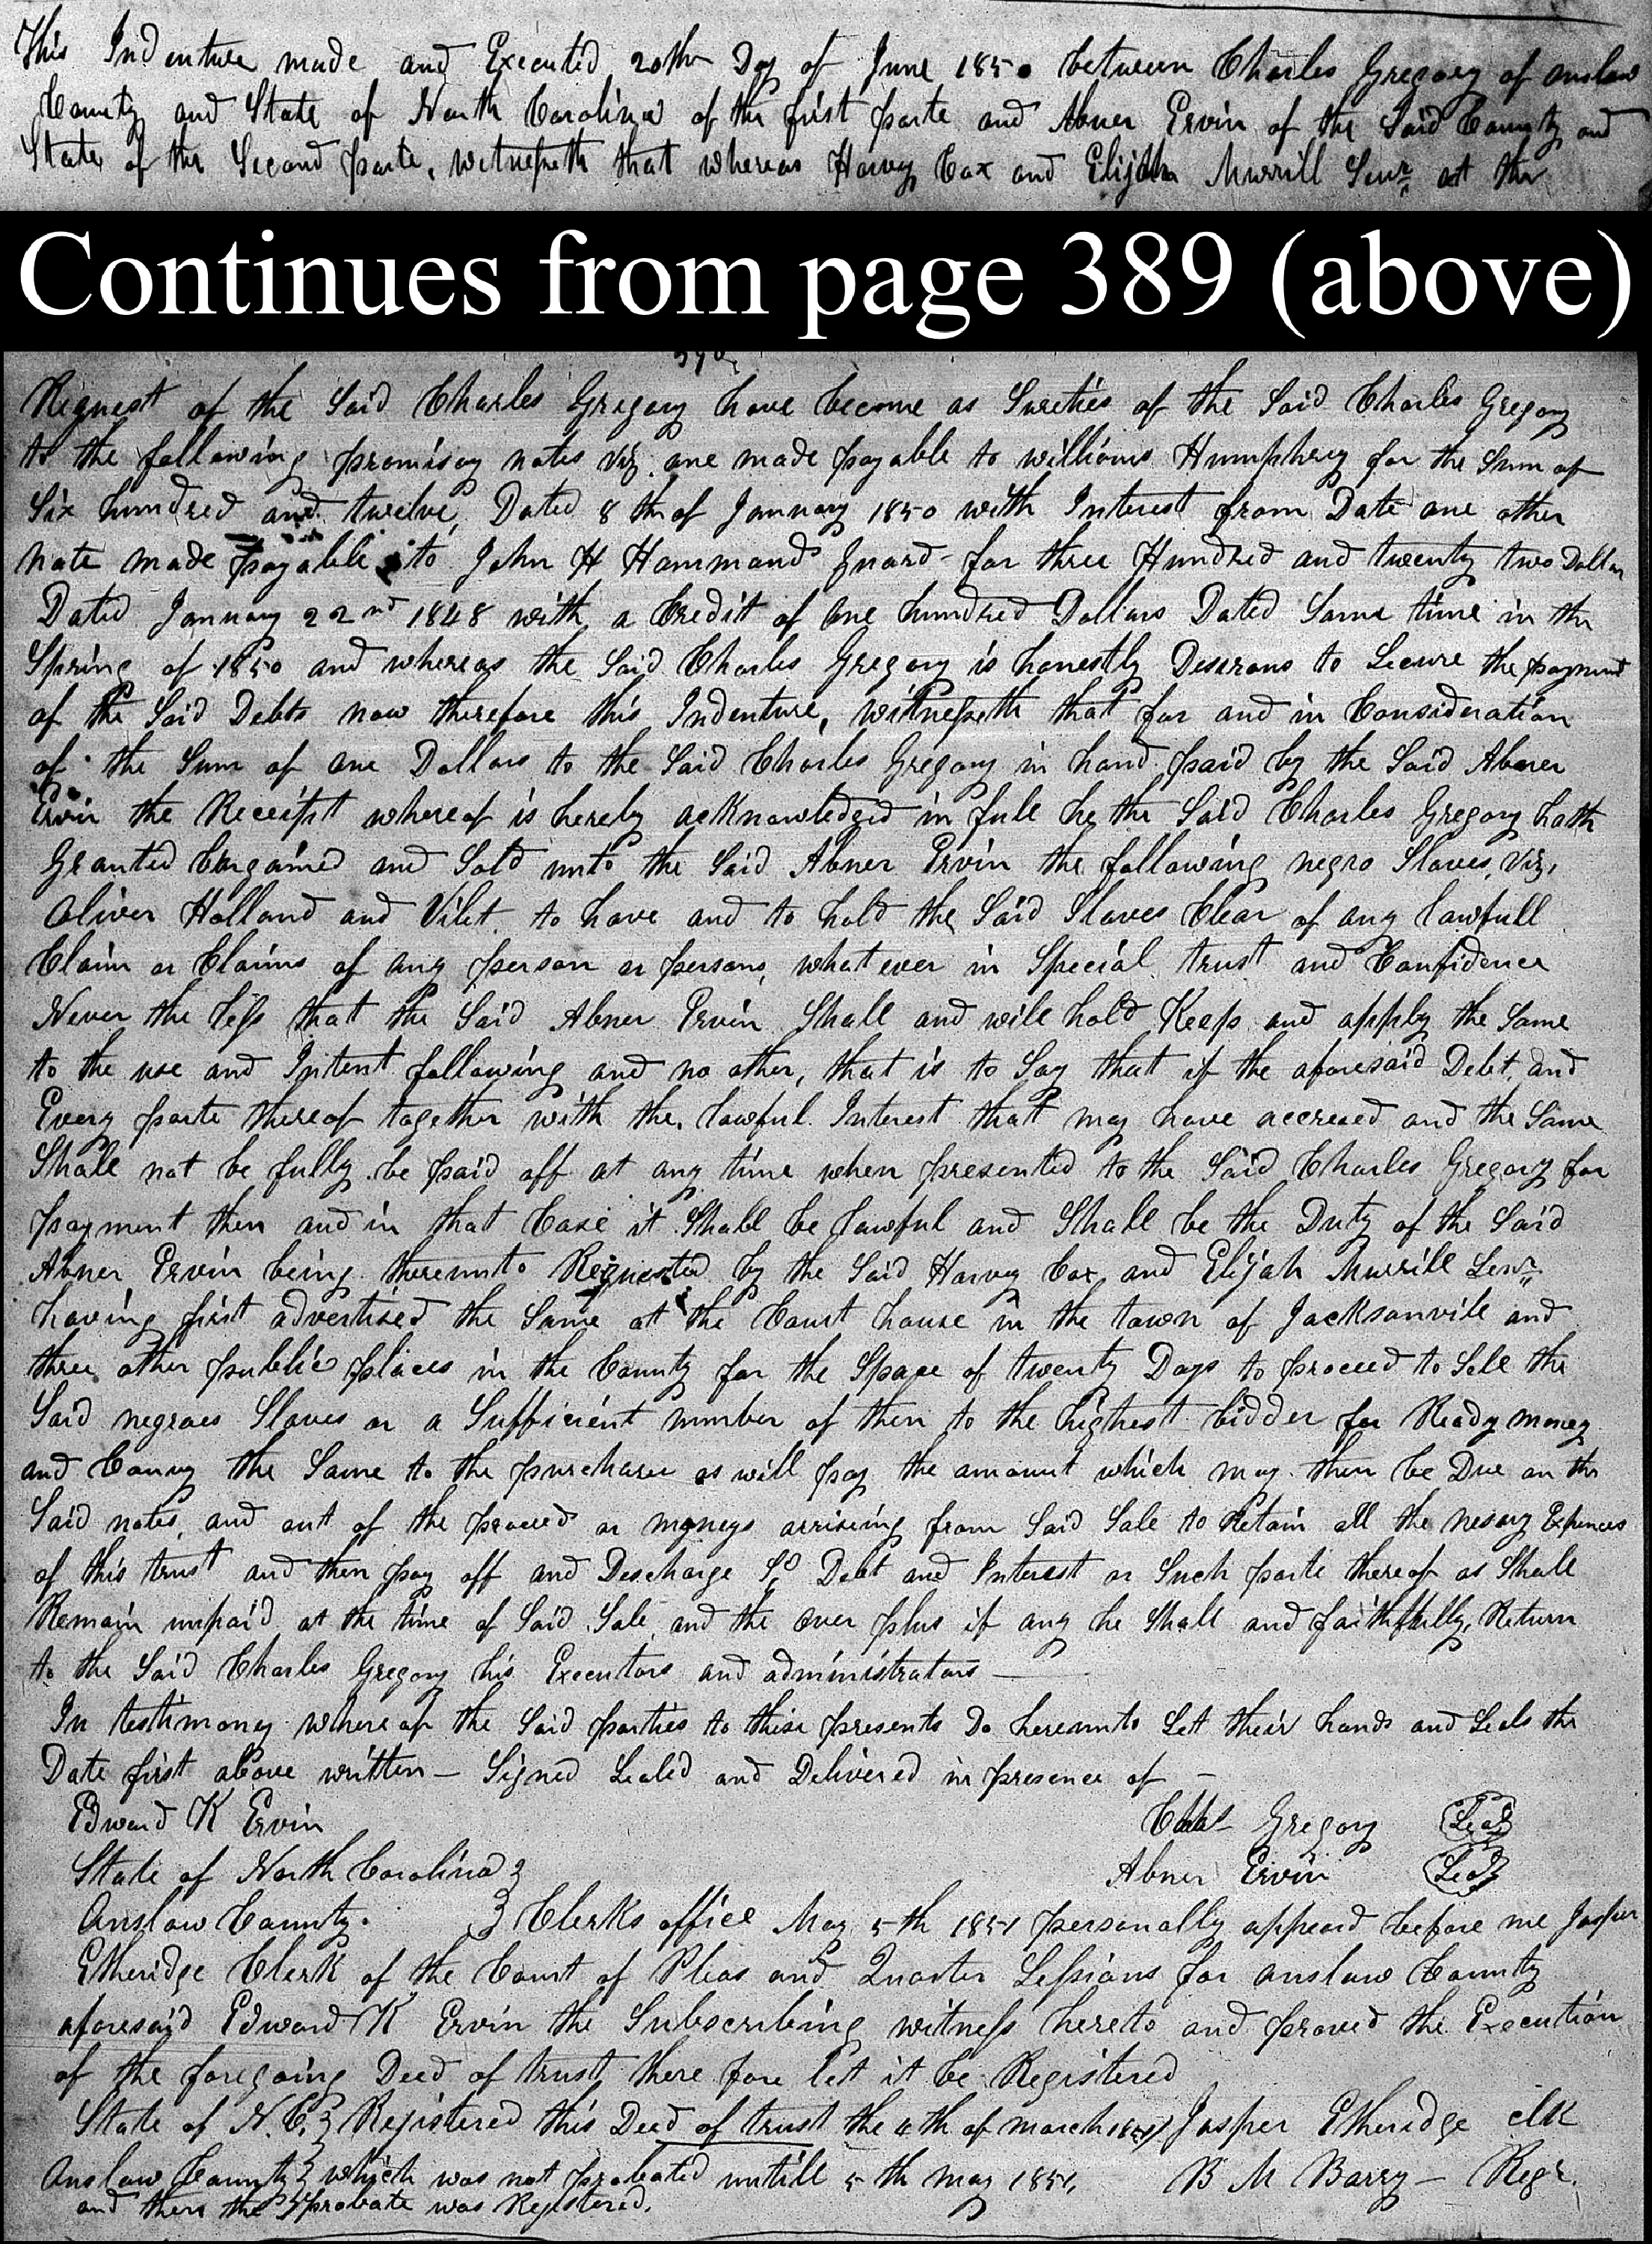 This Indenture made and Executed 20th Day of June 1850 between Charles Gregory of onslow
County and State of North Carolina of the first parte and Abner Ervin of the Said County and
State of the Second parte, witnesseth that whereas Harvey Cox and Elijah Murrill Senr at the
Continues from page 389 (above)
390
Request of the Said Charles Gregory have become as Sureties of the Said Charles Gregory
to the following promisoy notes viz. one made payable to williams Humphrey for the Sum of
Six hundred and twelve, Dated 8th of January 1850 with Interest from Date one other
Note made payable to John H Hammond guard- for three Hundred and twenty two Dollars
Dated January 22nd 1848 with a Credit of One hundred Dollars Dated Some time in the
Spring of 1850 and whereas the Said Charles Gregory is honestly Desirous to Secure the payment
of the Said Debts now therefore this Indenture, witnesseth that for and in Consideration
of the Sum of one Dollars to the Said Charles Gregory in hand paid by the Said Abner
Ervin the Receipt whereof is hereby acknowledged in full he the Said Charles Gregory hath
Granted bargained and Sold unto the Said Abner Ervin the following negro Slaves, viz,
Oliver Holland and Vilet. to have and to hold the Said Slaves Clear of any lawfull
Claim or Claims of any person or persons, what ever in Special trust and Confidence
Never the less that the Said Abner Ervin Shall and will hold Keep and apply the Same
to the use and Intent following and no other, that is to Say that if the aforesaid Debt, and
Every parte thereof together with the, lawful Interest that may have accreued and the Same
Shall not be fully be paid off at any time when presented to the Said Charles Gregory for
payment then and in that Case it Shall be lawful and Shall be the Duty of the Said
Abner Ervin being thereunto Requested by the Said Harvey Cox and Elijah Murrill Senr
having first advertised the Same at the Court house in the town of Jacksonvill and
three other public places in the County for the Space of twenty Days to proceed to Sell the
Said negroes Slaves or a Sufficient number of then to the highest bidder for Ready money
and Convey the Same to the purchaser as will pay the amount which may then be Due on the
Said notes, and out of the proceeds or moneys arriseing from Said Sale to Retain all the nesary Expences
of this trust and then pay off and Descharge Sd Debt and Interest or Such parte thereof as Shall
Remain unpaid at the time of Said Sale, and the over plus if any he Shall and faithfully, Return
to the Said Charles Gregory his Executors and administrators —
In testimony where of the Said parties to these presents Do hereunto Set their hands and Seals the
Date first above written — Signed Sealed and Delivered in presence of —
Edward K Ervin Chas Gregory Seal
State of North Carolina Abner Ervin Seal
Onslow County. Clerks office May 5th 1851 personally appeard before me Jasper
Etheridge Clerk of the Court of Pleas and Quarter Sessions for onslow County
aforesaid Edward K Ervin the Subscribing witness hereto and proved the Execution
of the foregoing Deed of trust there fore let it be Registered
State of N.C. Registered this Deed of trust the 4th of march 1851 Jasper Etheridge clk
Onslow County which was not probated untill 5th may 1851, B M Barry — Regr.
and then the probate was Registered.